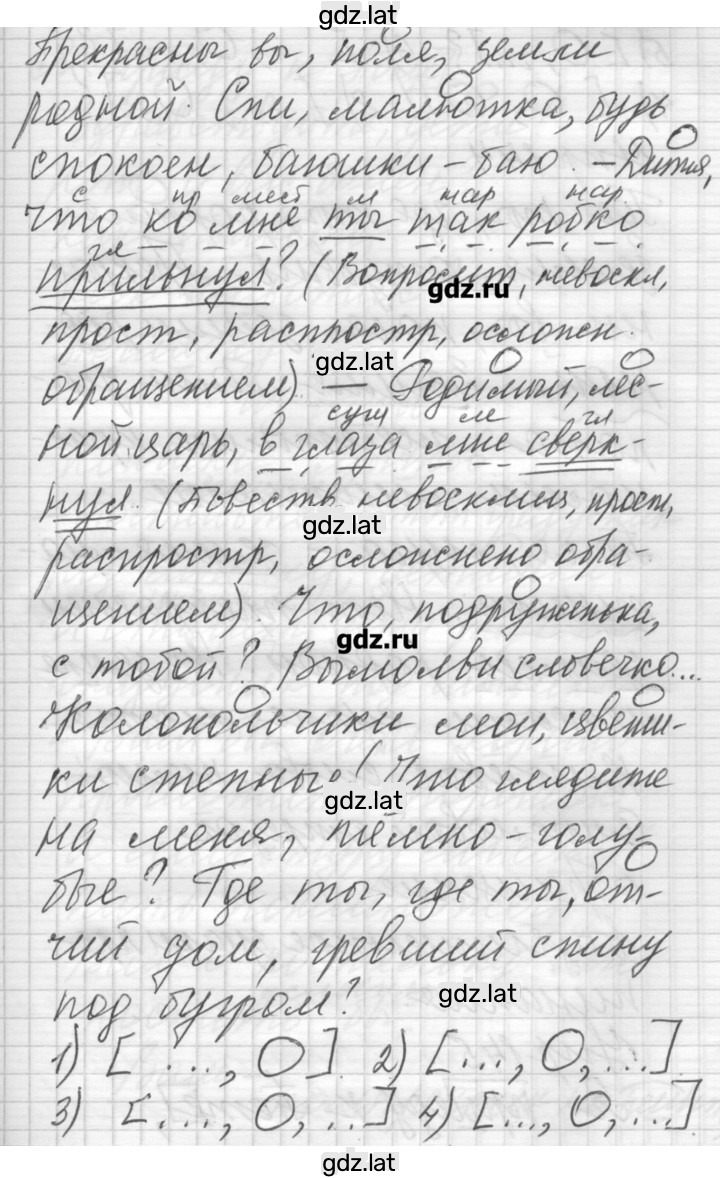 gdz.lat
Прекрасны вы, поля, земли
родной. Спи, малютка, будь
спокоен, баюшки-баю. - Дитя,
с пр мест м нар нар.
что ко мне ты так робко
гл
прильнул? (Вопросит, невоскл,
gdz.ru
прост, распростр, осложн.
gdz.lat
обращением) — Родимый, лес-
сущ м гл
ной царь, в глаза мне сверк-
нул. (Повеств невосклиц, прост,
gdz.lat
распростр, осложнено обра-
щением). Что, подруженька,
gdz.ru
с тобой? Вымолви словечко...
Колокольчики мои, цвети-
ки степны. Что глядите
gdz.lat
на меня, тёмно-голу-
бые? Где ты, где ты, от-
чий дом, гревший спину
gdz.lat
под бугром?
1) [ ..., O ]. 2) [..., O, ...]
3) [..., O, ...] 4) [..., O, ...]
gdz.lat